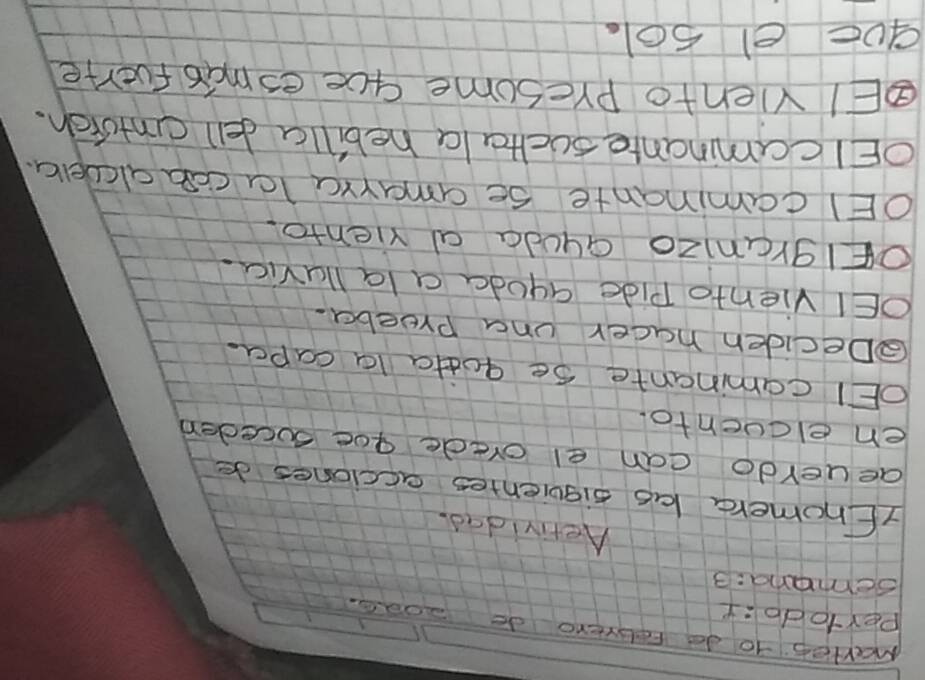 Martes 10 de Febrero de
Periodo: 1
Semana: 3
Actividad.
1 Enomera las siguientes acciones de
acuerdo con el orede que suceden
en el cuento.
O El caminante se quita la capa.
② Deciden hacer una prueba.
O El viento Pide ayuda a la lluvia.
O El granizo ayuda al viento.
O El caminante se amarra la capa al cuello.
O El caminante suelta la hebilla dell cinturón.
① El viento presume que es más fuerte
que el sol.